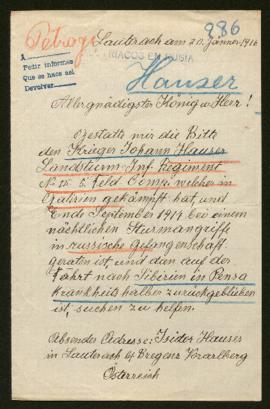 886
Petrog
Lauterach am 20. Jänner 1916
MACOS EN RUSIA
A
Pedir informes
Que se hace así
Devolver
Hauser
Allergnädigster König u. Herr!
Gestatte mir die Bitte
den Krieger Johann Hauser
Landsturm-Inf. Regiment
5. Feld Comp. welcher in
Galizien gekämpft hat, und
Ende September 1914 bei einem
nächtlichen Sturmangriffe
in russische Gefangenschaft
geraten ist, und dan auf der
Fahrt nach Sibirien in Pensa
Krankheits halber zurückgeblieben
ist, suchen zu helfen.
Absender Adresse: Isidor Hauser
in Lauterach bei Bregenz Vorarlberg
Österreich